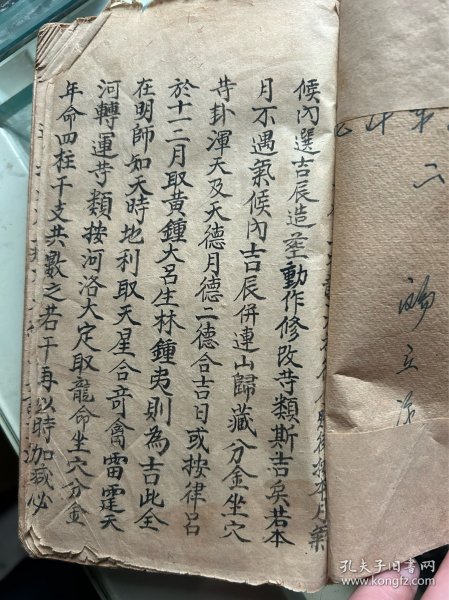 候內選吉辰造塟動作修改䓁類斯吉矣若本
月不遇氣候內吉辰併連山歸藏分金坐穴
䓁卦渾天及天德月德二德合吉日或按律呂
於十一二月取黃鍾大呂生林鍾夷則為吉此全
在明師知天時地利取天星合竒禽雷霆天
河轉運䓁類按河洛大定取龍命坐穴分金
年命四柱干支共數之若干再以時加減必
孔夫子旧书网
www.kongfz.com